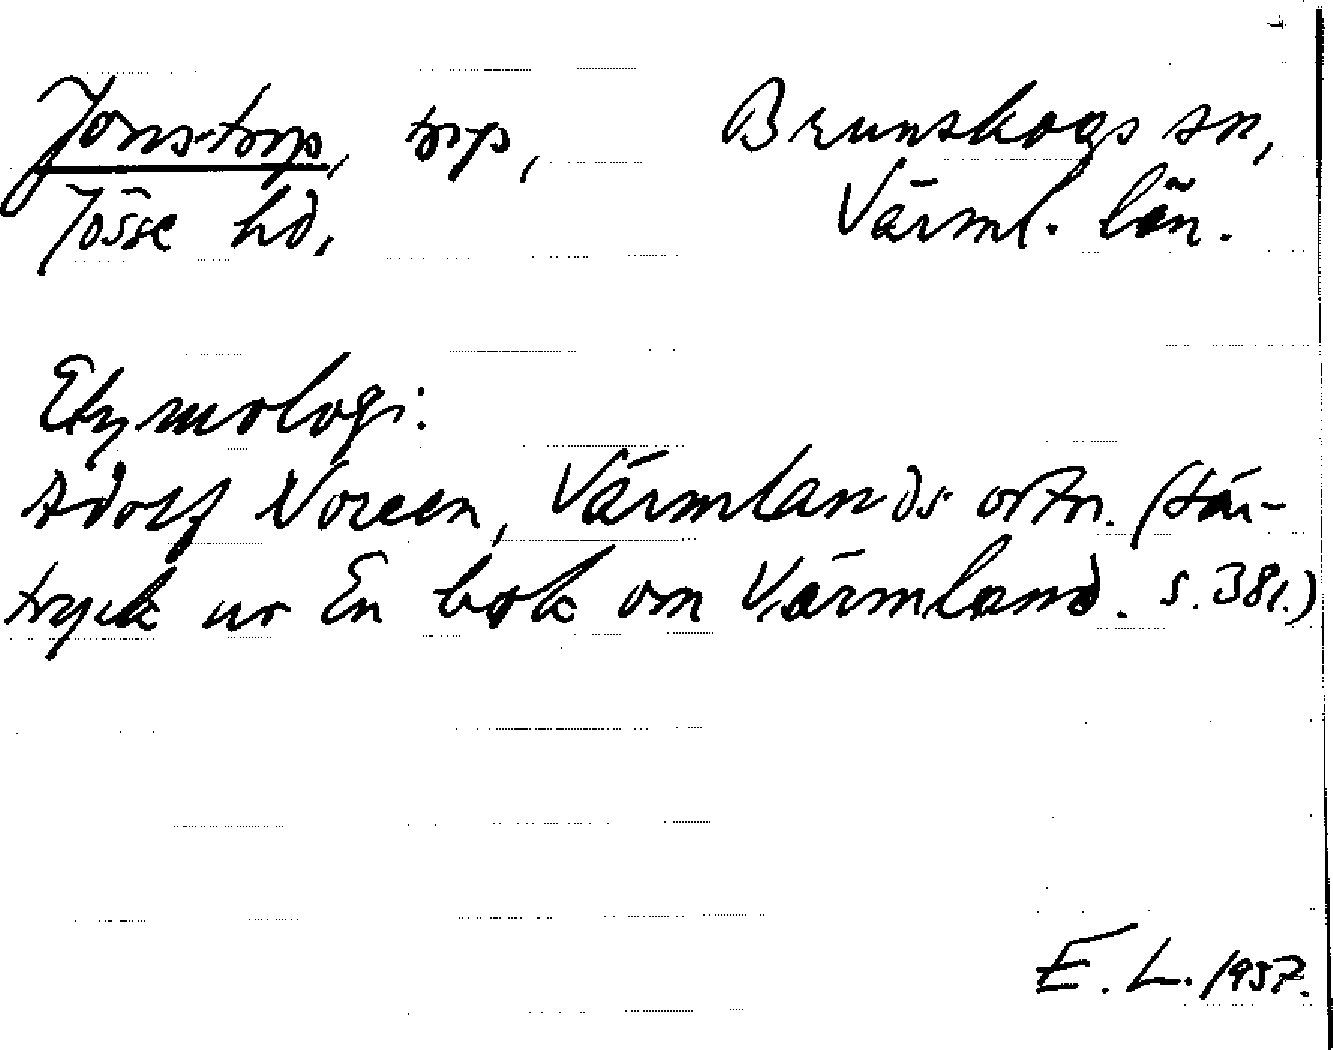 Jonstorp, torp, Brunskogs sn,
Jösse hd, Värml. län.
Etymologi:
Adolf Noreen, Värmlands ortn. (Sär-
tryck ur En bok om Värmland. S. 381.)
E. L. 1937.